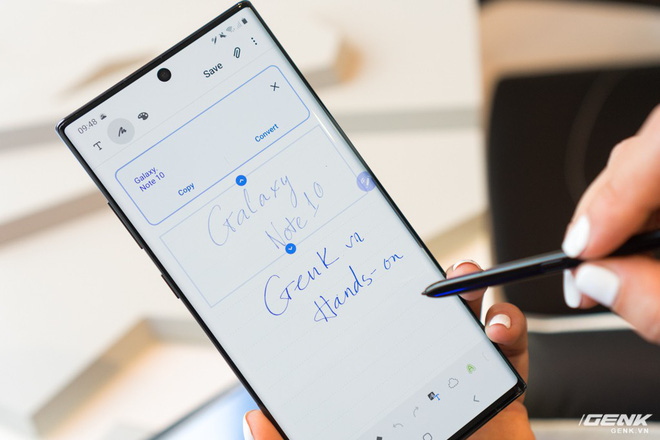 09:48
Save
T
Galaxy.
Note 10
Copy
Convert
Galaxy
Note 10
Genk vn
Hands-on
GENK
GENK.VN